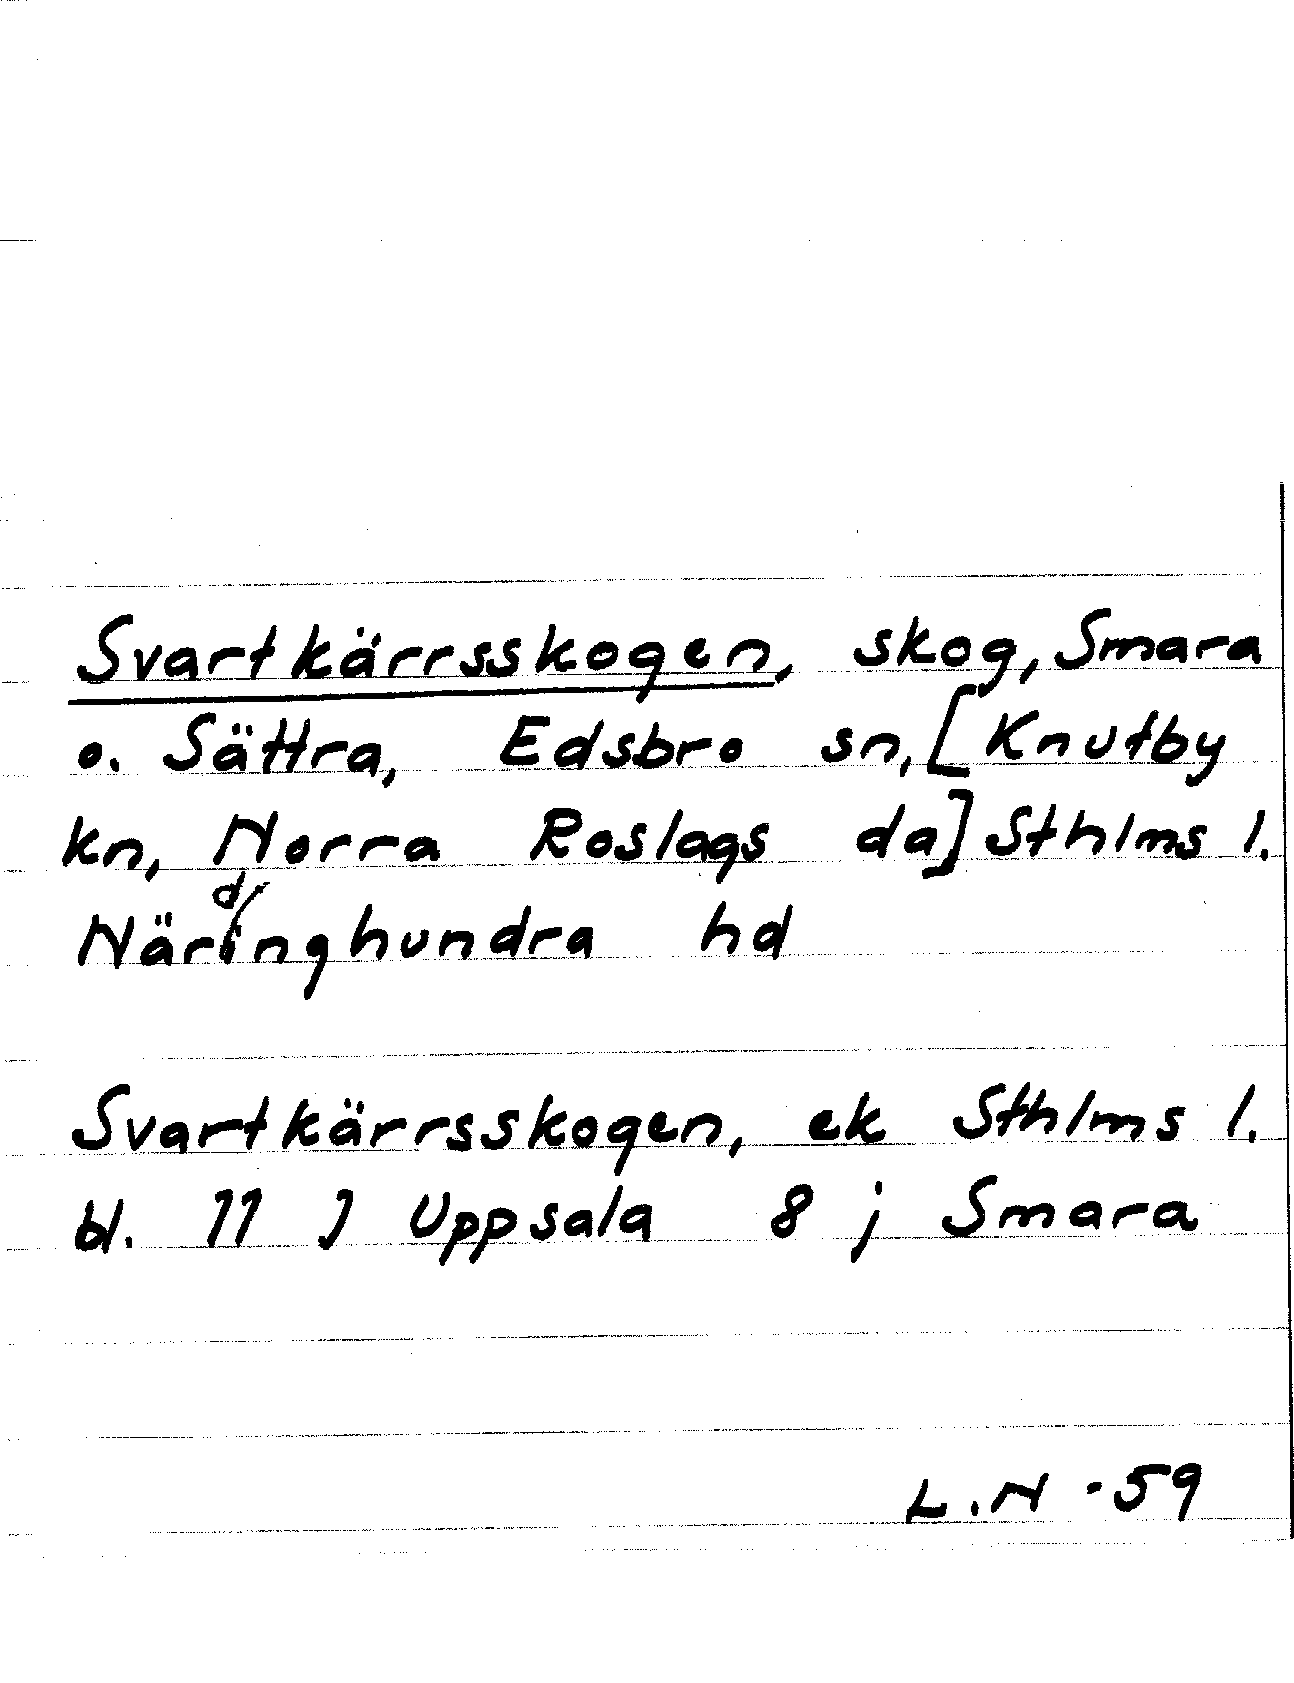 Svartkärrsskogen, skog, Smara
o. Sättra, Edsbro sn, [Knutby
kn, Norra Roslags da] Sthlms l.
Närdinghundra hd

Svartkärrsskogen, ek Sthlms l.
bl. 11 J Uppsala 8 j Smara

L.N -59